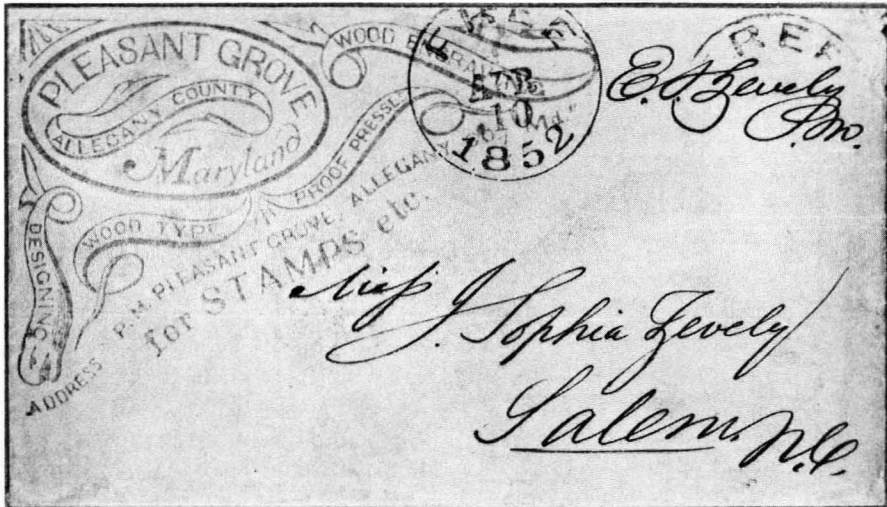 PLEASANT GROVE
ALLEGANY COUNTY
Maryland
WOOD ENGRAVING
PROOF PRESSES
WOOD TYPE
DESIGNING &
ADDRESS P.M. PLEASANT GROVE, ALLEGANY Co. Md."
for STAMPS etc.
APR
10
1852
FREE
E. S. Zevely
P.M.
Miss J. Sophia Zevely
Salem. N.C.